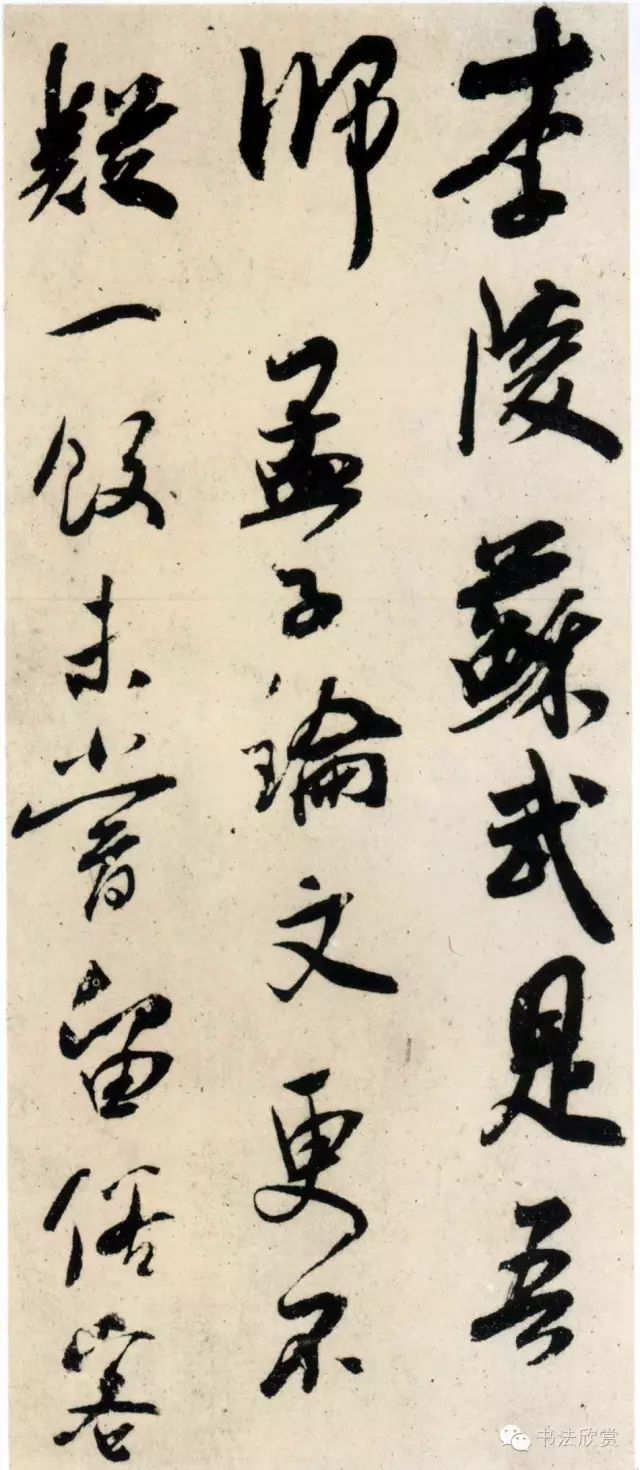 李陵蘇武是吾
師孟子論文更不
疑一飯未曾留俗客
书法欣赏